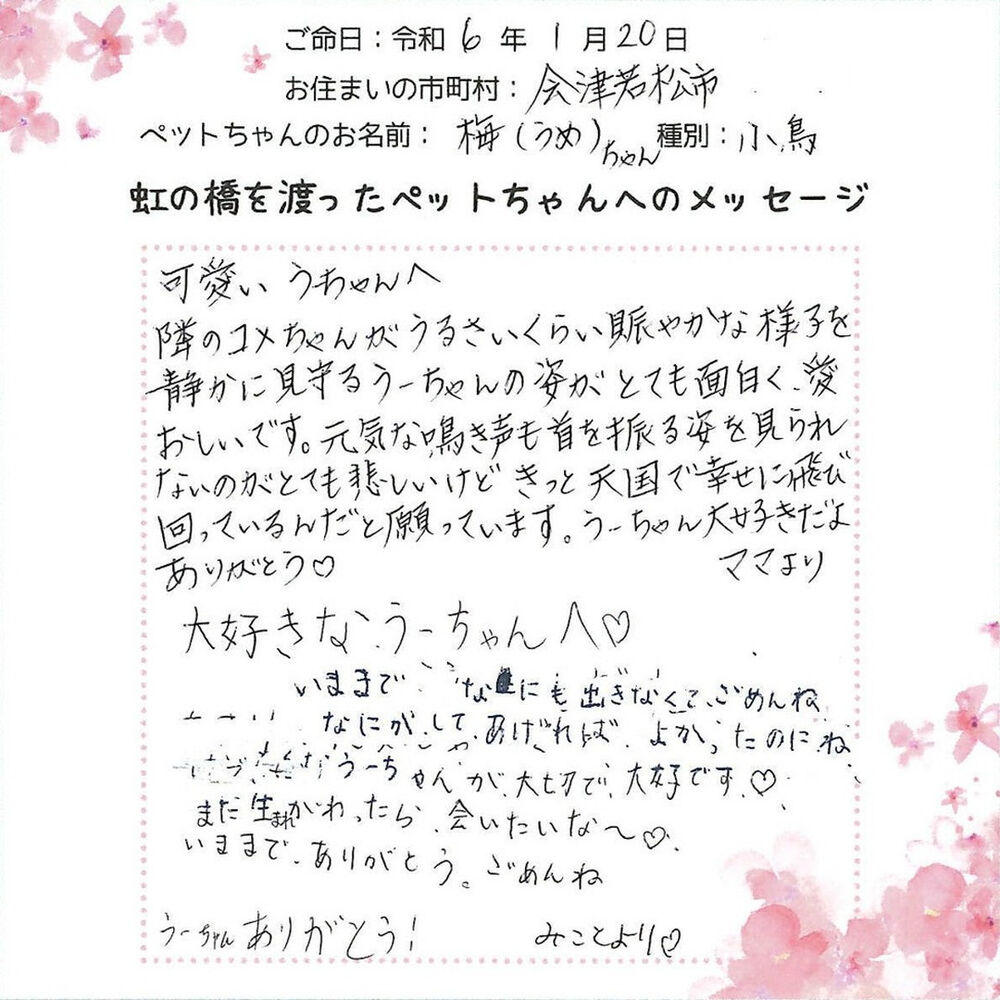 ご命日：令和 6 年 1 月 20 日
お住まいの市町村： 会津若松市
ペットちゃんのお名前： 梅（うめ）ちゃん 種別：小鳥
虹の橋を渡ったペットちゃんへのメッセージ
可愛い うちゃんへ
隣のコメちゃんがうるさいくらい賑やかな様子を
静かに見守るうーちゃんの姿がとても面白く、愛
おしいです。元気な鳴き声も首を振る姿を見られ
ないのがとても悲しいけど きっと天国で幸せに飛び
回っているんだと願っています。うーちゃん大好きだよ
ありがとう♡ ママより
大好きな、うーちゃんへ♡
いままで なにも出きなくて、ごめんね
なにがして、あげれば、よかったのに、ね
うーちゃんが、大切で、大好です。♡
また生まれがわったら、会いたいな〜♡
いままで、ありがとう。ごめんね
うーちゃんありがとう！ みことより♡